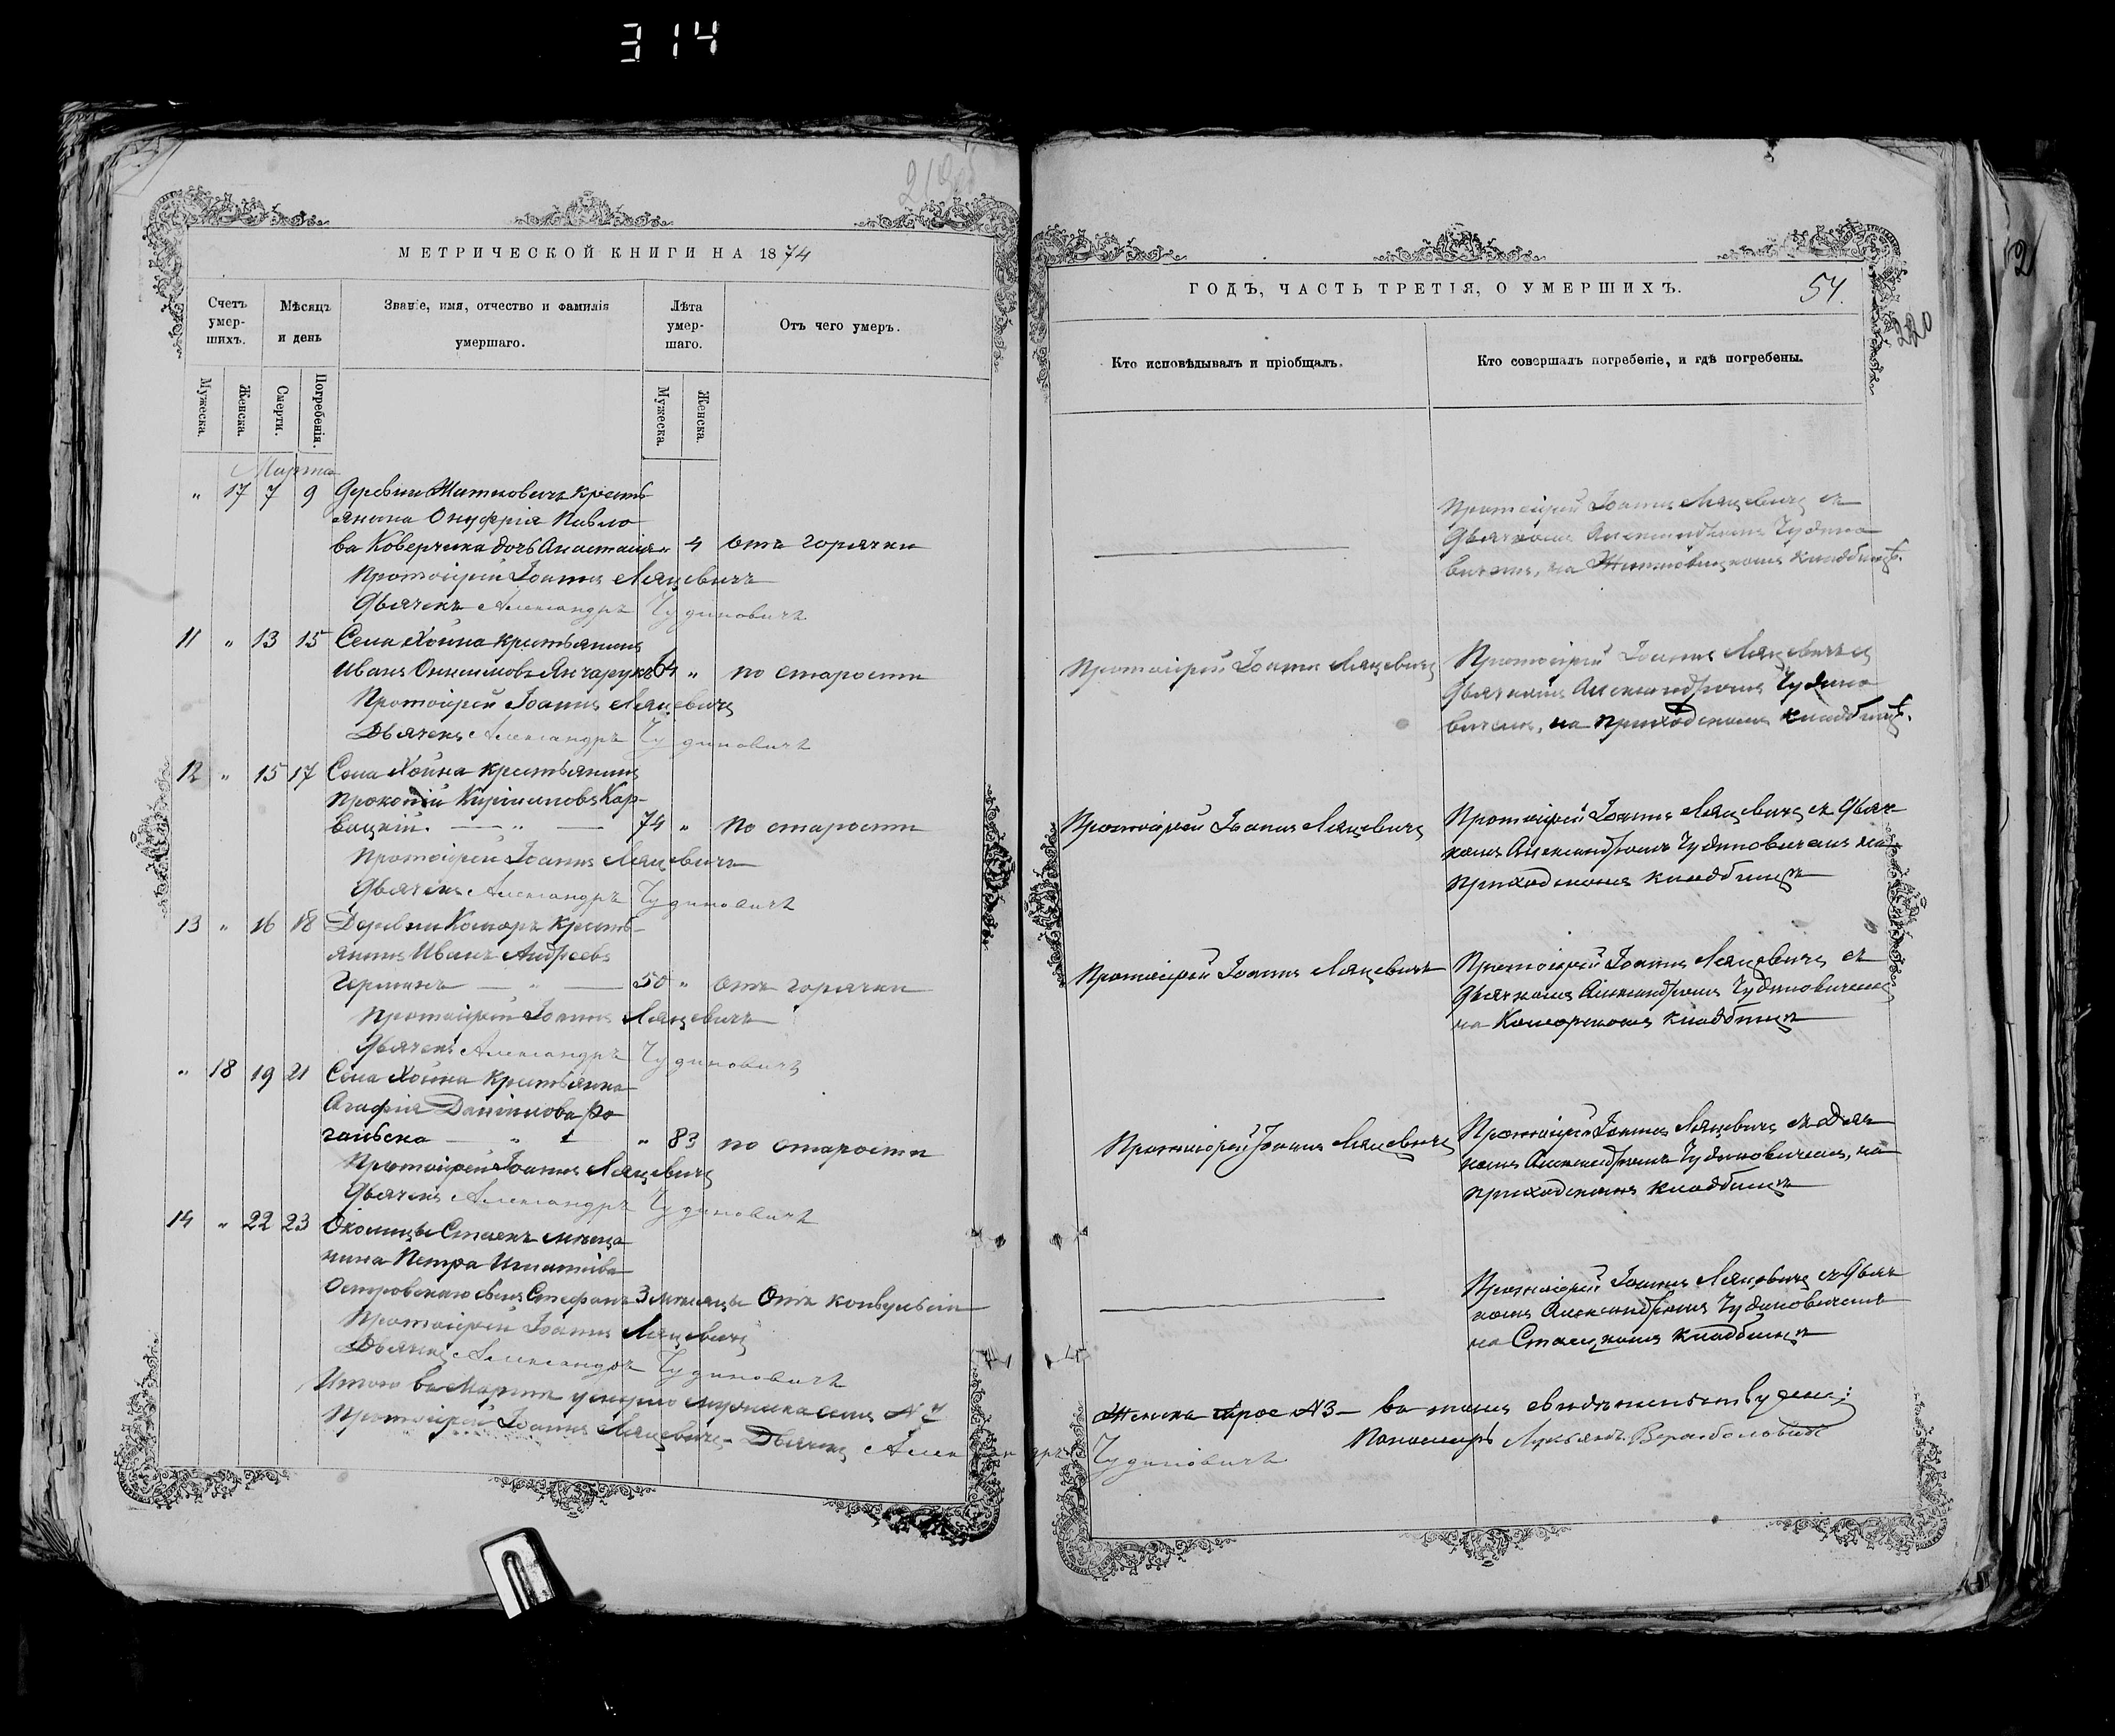 314
219об
МЕТРИЧЕСКОЙ КНИГИ НА 1874
Счетъ умершихъ.
Мѣсяцъ и день
Званіе, имя, отчество и фамилія умершаго.
Лѣта умершаго.
Отъ чего умеръ.
Мужеска.
Женска.
Смерти.
Погребенія.
Мужеска.
Женска.
Марта
" 17 7 9 Деревни Житковичъ кресть-
янина Онуфрія Павло-
ва Коверчика дочь Анастасія " 4 отъ горячки
Протоіерей Іоаннъ Ляцевичъ
Дьячекъ Александръ Чудиновичъ
11 " 13 15 Села Хойна крестьянинъ
Иванъ Онисимовъ Янчарукъ 64 " по старости
Протоіерей Іоаннъ Ляцевичъ
Дьячекъ Александръ Чудиновичъ
12 " 15 17 Села Хойна крестьянинъ
Прокопій Кирилловъ Кар-
вацкій. — " — 74 " по старости
Протоіерей Іоаннъ Ляцевичъ
Дьячекъ Александръ Чудиновичъ
13 " 16 18 Деревни Комора кресть-
янинъ Иванъ Андреевъ
Германъ — " — 50 " отъ горячки
Протоіерей Іоаннъ Ляцевичъ
Дьячекъ Александръ Чудиновичъ
" 18 19 21 Села Хойна крестьянка
Агафія Даниилова Ро-
гальска — " — " 83 по старости
Протоіерей Іоаннъ Ляцевичъ
Дьячекъ Александръ Чудиновичъ
14 " 22 23 Околицы Ставекъ мѣща-
нина Петра Игнатіева
Островскаго сынъ Стефанъ 3 мѣсяцы Отъ конвульсіи
Протоіерей Іоаннъ Ляцевичъ
Дьячекъ Александръ Чудиновичъ
Итого въ Мартѣ умерло мужеска семь № 7
Протоіерей Іоаннъ Ляцевичъ Дьячекъ Александръ
ГОДЪ, ЧАСТЬ ТРЕТІЯ, О УМЕРШИХЪ.
54.
220
Кто исповѣдывалъ и пріобщалъ.
Кто совершалъ погребеніе, и гдѣ погребены.
Протоіерей Іоаннъ Ляцевичъ съ
Дьячкомъ Александромъ Чудино
вичемъ, на Житковицкомъ кладбищѣ.
Протоіерей Іоаннъ Ляцевичъ
Протоіерей Іоаннъ Ляцевичъ съ
Дьячкомъ Александромъ Чудино
вичемъ, на приходскомъ кладбищѣ.
Протоіерей Іоаннъ Ляцевичъ
Протоіерей Іоаннъ Ляцевичъ съ Дьяч-
комъ Александромъ Чудиновичемъ на
приходскомъ кладбищѣ
Протоіерей Іоаннъ Ляцевичъ
Протоіерей Іоаннъ Ляцевичъ съ
Дьячкомъ Александромъ Чудиновичемъ
на Коморскомъ кладбищѣ
Протоіерей Іоаннъ Ляцевичъ
Протоіерей Іоаннъ Ляцевичъ съ Дьяч
комъ Александромъ Чудиновичемъ, на
приходскомъ кладбищѣ
Протоіерей Іоаннъ Ляцевичъ съ Дьяч
комъ Александромъ Чудиновичемъ
на Ставецкомъ кладбищѣ
Женска трое № 3 — въ томъ свидѣтельствуемъ;
Чудиновичъ
Пономарь Лукьянъ